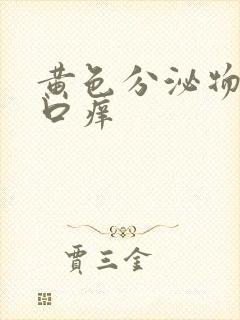 黄色分泌物
口痒
贾三金